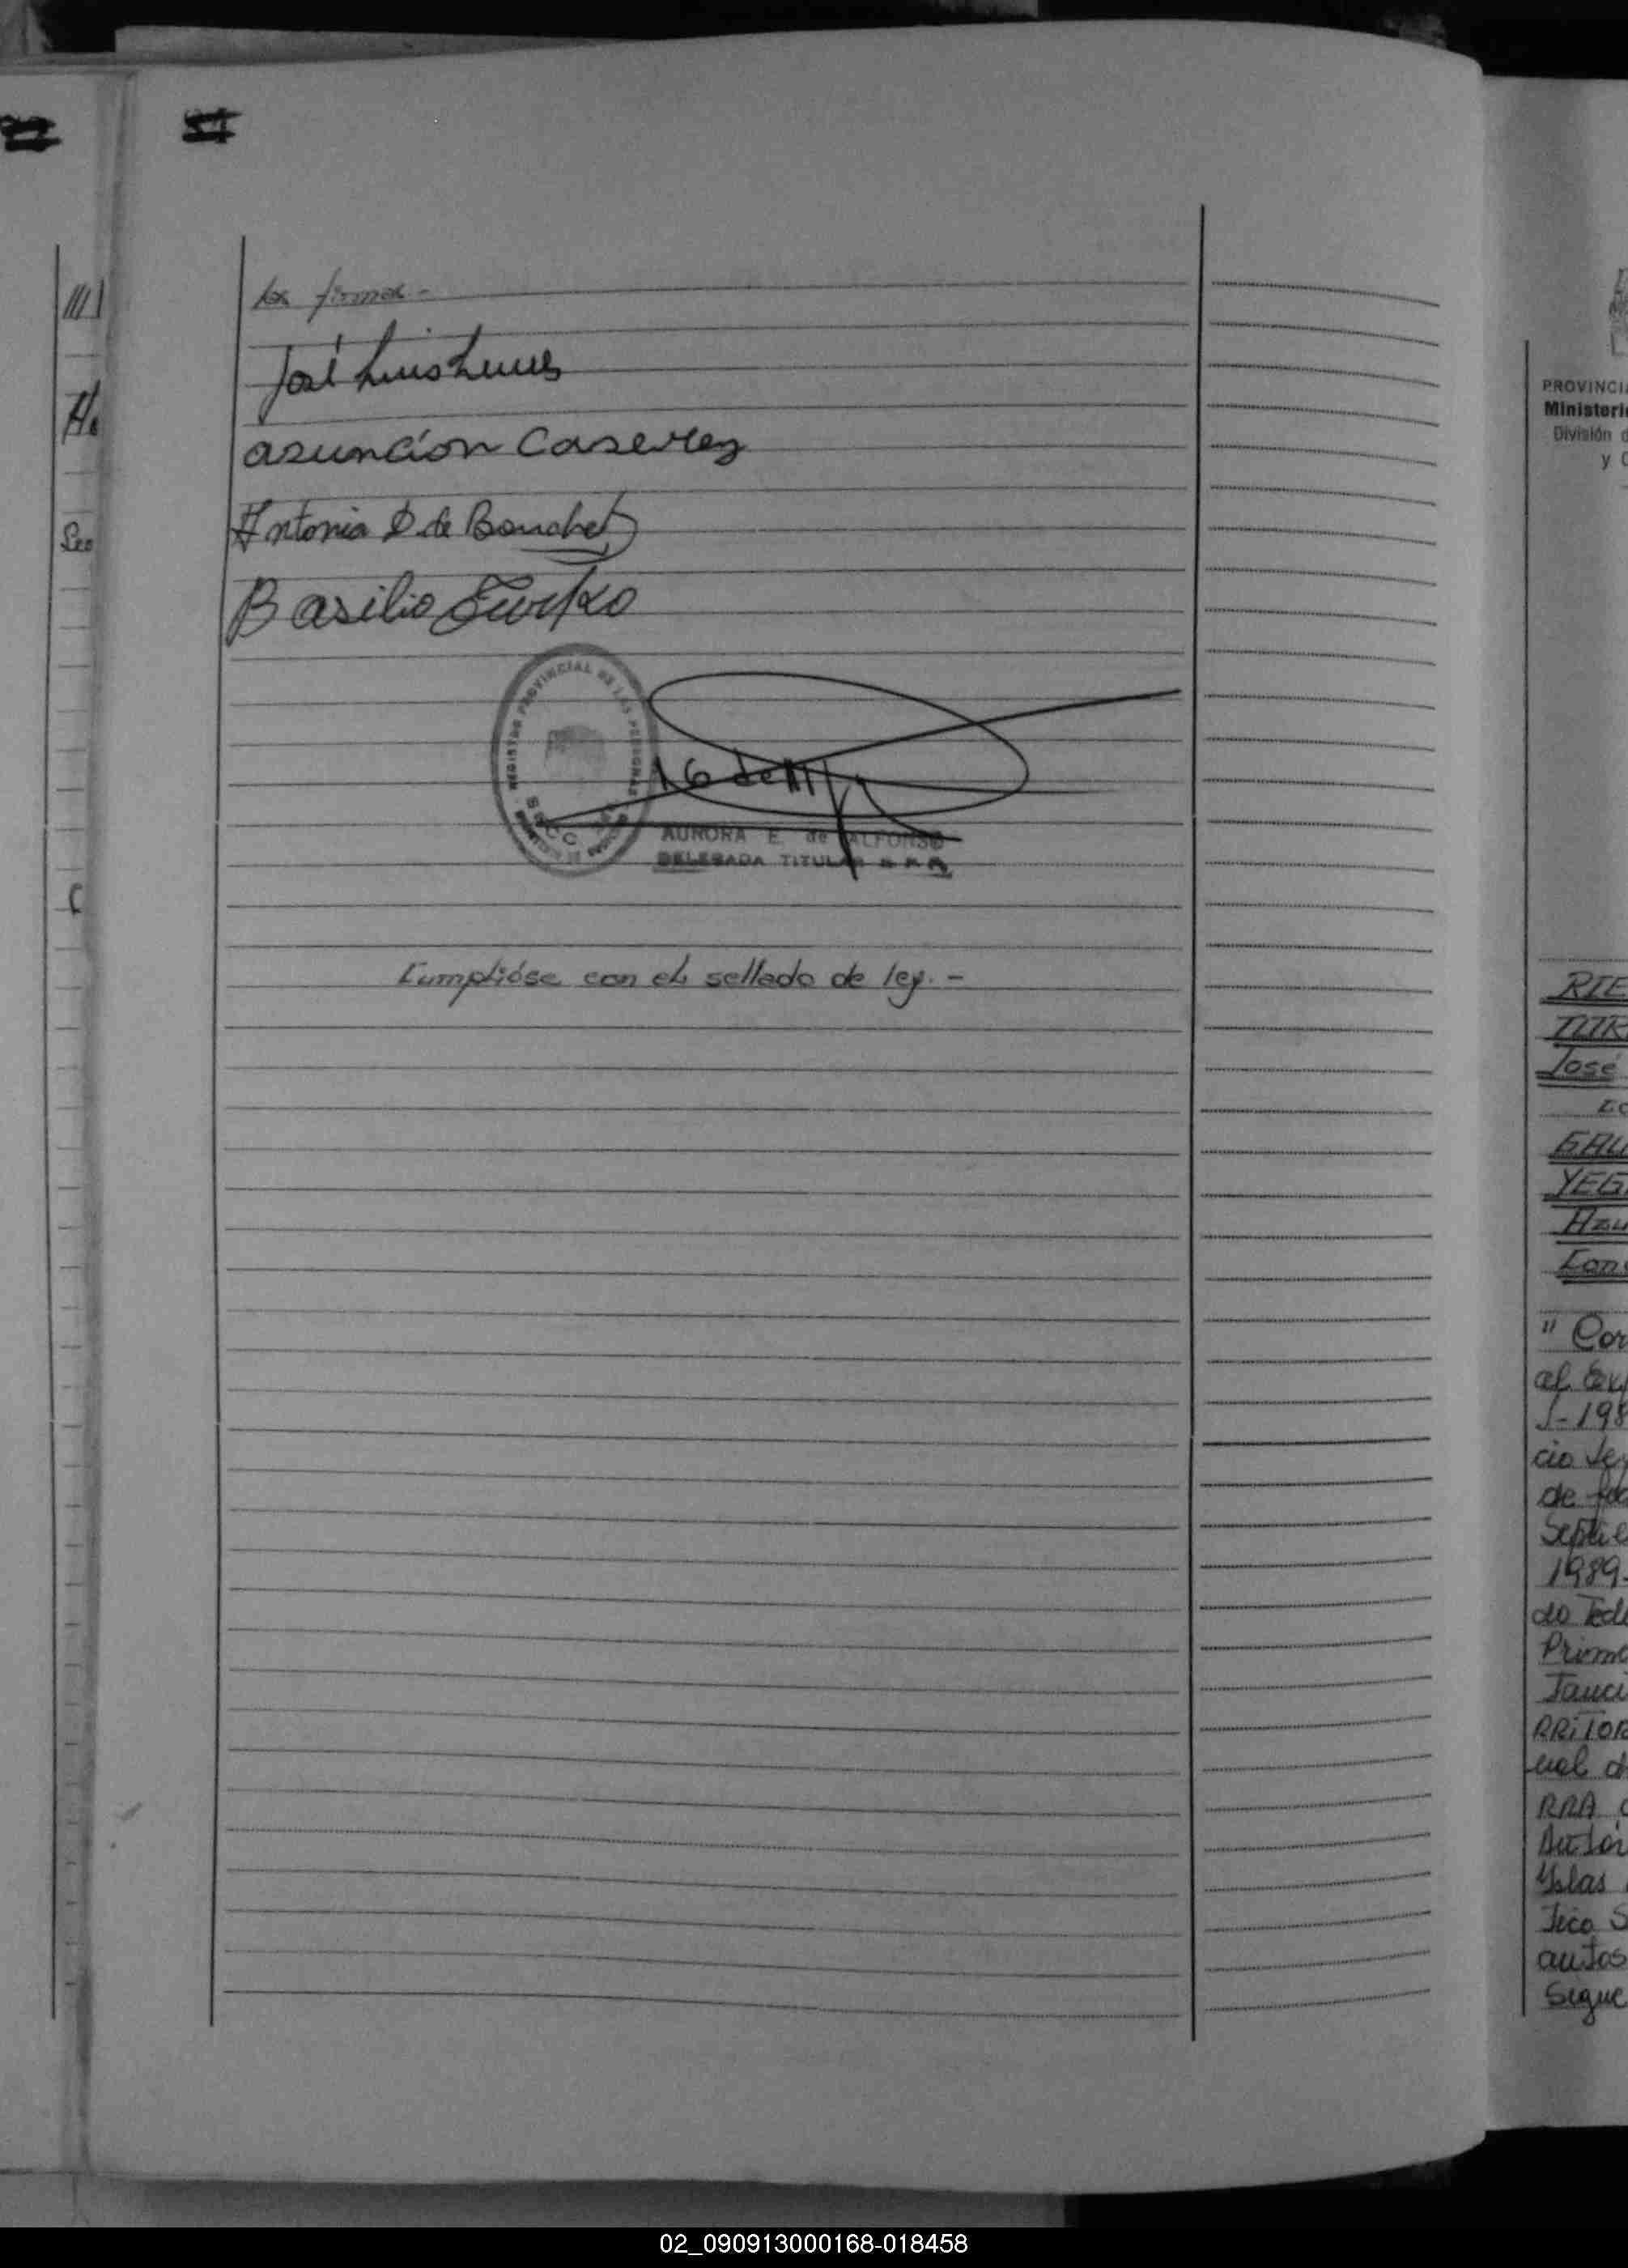 los firmas.-
José Luis
asunción Caserez
Antonia D. de Bouchet
Basilio
REGISTRO PROVINCIAL DE LAS PERSONAS
16 de
AURORA E. de ALFONSO
DELEGADA TITULAR
Cumplióse con el sellado de ley.-
Seo
PROVINCIA
Ministeri
División d
y C
RIE
TUR
José
GAU
YEG
Azu
Con
" Cor
al Exp
J-198
cio Ley
de fec
Septie
1989-
do Fede
Prime
RRITOR
nal d
RRA
Antár
Yslas
tico S
autos
Segue
02_090913000168-018458